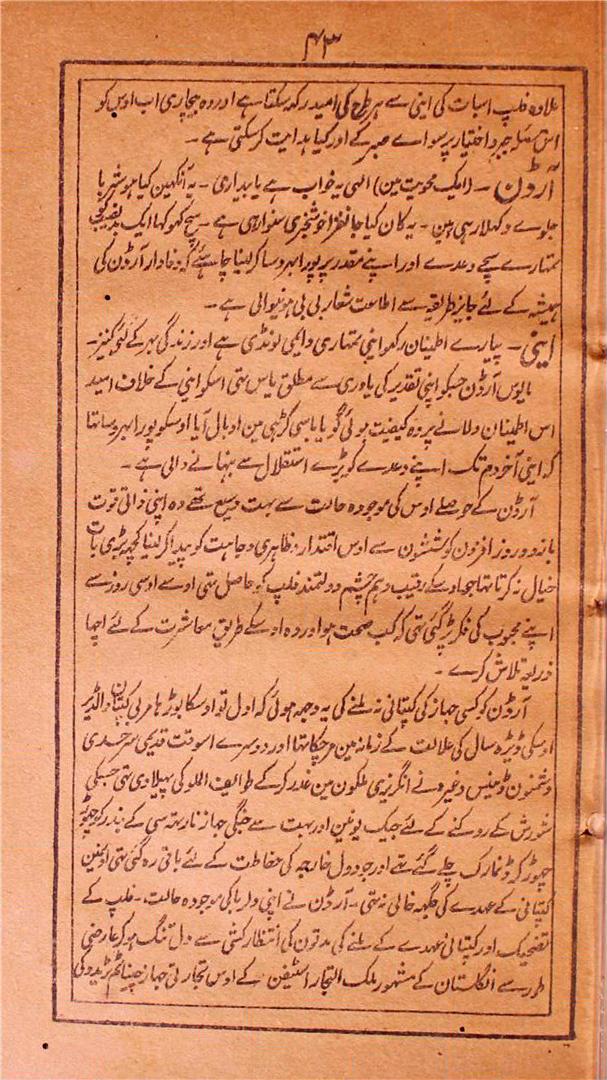 ۴۳
علاوہ فلپ اسبات کی اینی سے ہر طرح کی امید رکہ سکتا ہے اور وہ بیچاری اب اوس کو
اس مسئلہ جبر و اختیار پر سواے صبر کے اور کیا ہدایت کر سکتی ہے ۔
آرڈن ۔ (ایک محویت مین) الہی یہ خواب ہے یا بداری ۔ یہ انکہین کیا ہوشربا
جلوے دکہلا رہی ہین ۔ یہ کان کیا جانفزا خوشخبری سنوا رہی ہے ۔ سچ کہو کیا ایک بدنصیب کو
تمہارے سچے وعدے اور اپنے مقدر پر پورا بہروسا کر لینا چاہئے کہ وفادار آرڈن کی
ہمیشہ کے لئے جایز طریقہ سے اطاعت شعار بی بی ہونیوالی ہے ۔
اینی ۔ پیارے اطینان رکہو اینی تمہاری دایمی لونڈی ہے اور زندگی بہر کے لئے کنیز ۔
مایوس آرڈن جسکو اپنی تقدیر کی یاوری سے مطلق یاس تہی اسکو اینی کے خلاف امید
اس اطینان دلانے پر وہ کیفیت ہوئی گویا باسی کڑہی مین اوبال آیا اوسکو پورا بہروسا تہا
کہ اینی آخر دم تک اپنے وعدے کو بڑے استقلال سے نبہانے والی ہے ۔
آرڈن کے حوصلے اوس کی موجودہ حالت سے بہت وسیع تہے وہ اپنی ذاتی قوت
بازو و روز افزون کوششون سے اوس اقتدار و ظاہری وجاہت کو پیدا کر لینا کچہ بڑی بات
خیال نہ کرتا تہا جو اوسکے رقیب و ہم چشم دولتمند فلپ کو حاصل تہی اوسے اوسی روز سے
اپنے محبوب کی فکر پڑ گئی تہی کہ کب صحت ہو اور وہ اوسکے طریق معاشرت کے لئے اچہا
ذریعہ تلاش کرے ۔
آرڈن کو کسی جہاز کی کپتانی نہ ملنے کی یہ وجہ ہوئی کہ اول تو اوسکا بوڑہا مربی کپتان والڈیر
اوسکی ڈیڑہ سال کی علالت کے زمانہ مین مر چکا تہا اور دوسرے اسوقت قدیمی سرحدی
دشمنون ڈینس وغیرہ نے انگریزی ملکون مین غدر کر کے طوایف الملوکی پہیلا دی تہی جسکی
شورش کے روکنے کے لئے جیک یونین اور بہت سے جنگی جہاز نارتہ سی کے بندر کو چہوڑ
چہوڑ کر ڈنمارک چلے گئے تہے اور جو دول خارجہ کی حفاظت کے لئے باقی رہ گئی تہی اونمین
کپتانی کے عہدے کی جگہہ خالی نہ تہی ۔ آرڈن نے اپنی دلربا کی موجودہ حالت ۔ فلپ کے
تضحیک اور کپتانی عہدے کے ملنے کی مدتون کی انتظار کشی سے دل تنگ ہو کر عارضی
طور سے انگلستان کے مشہور ملک التجار اسٹیفن کے اوس تجارتی جہاز